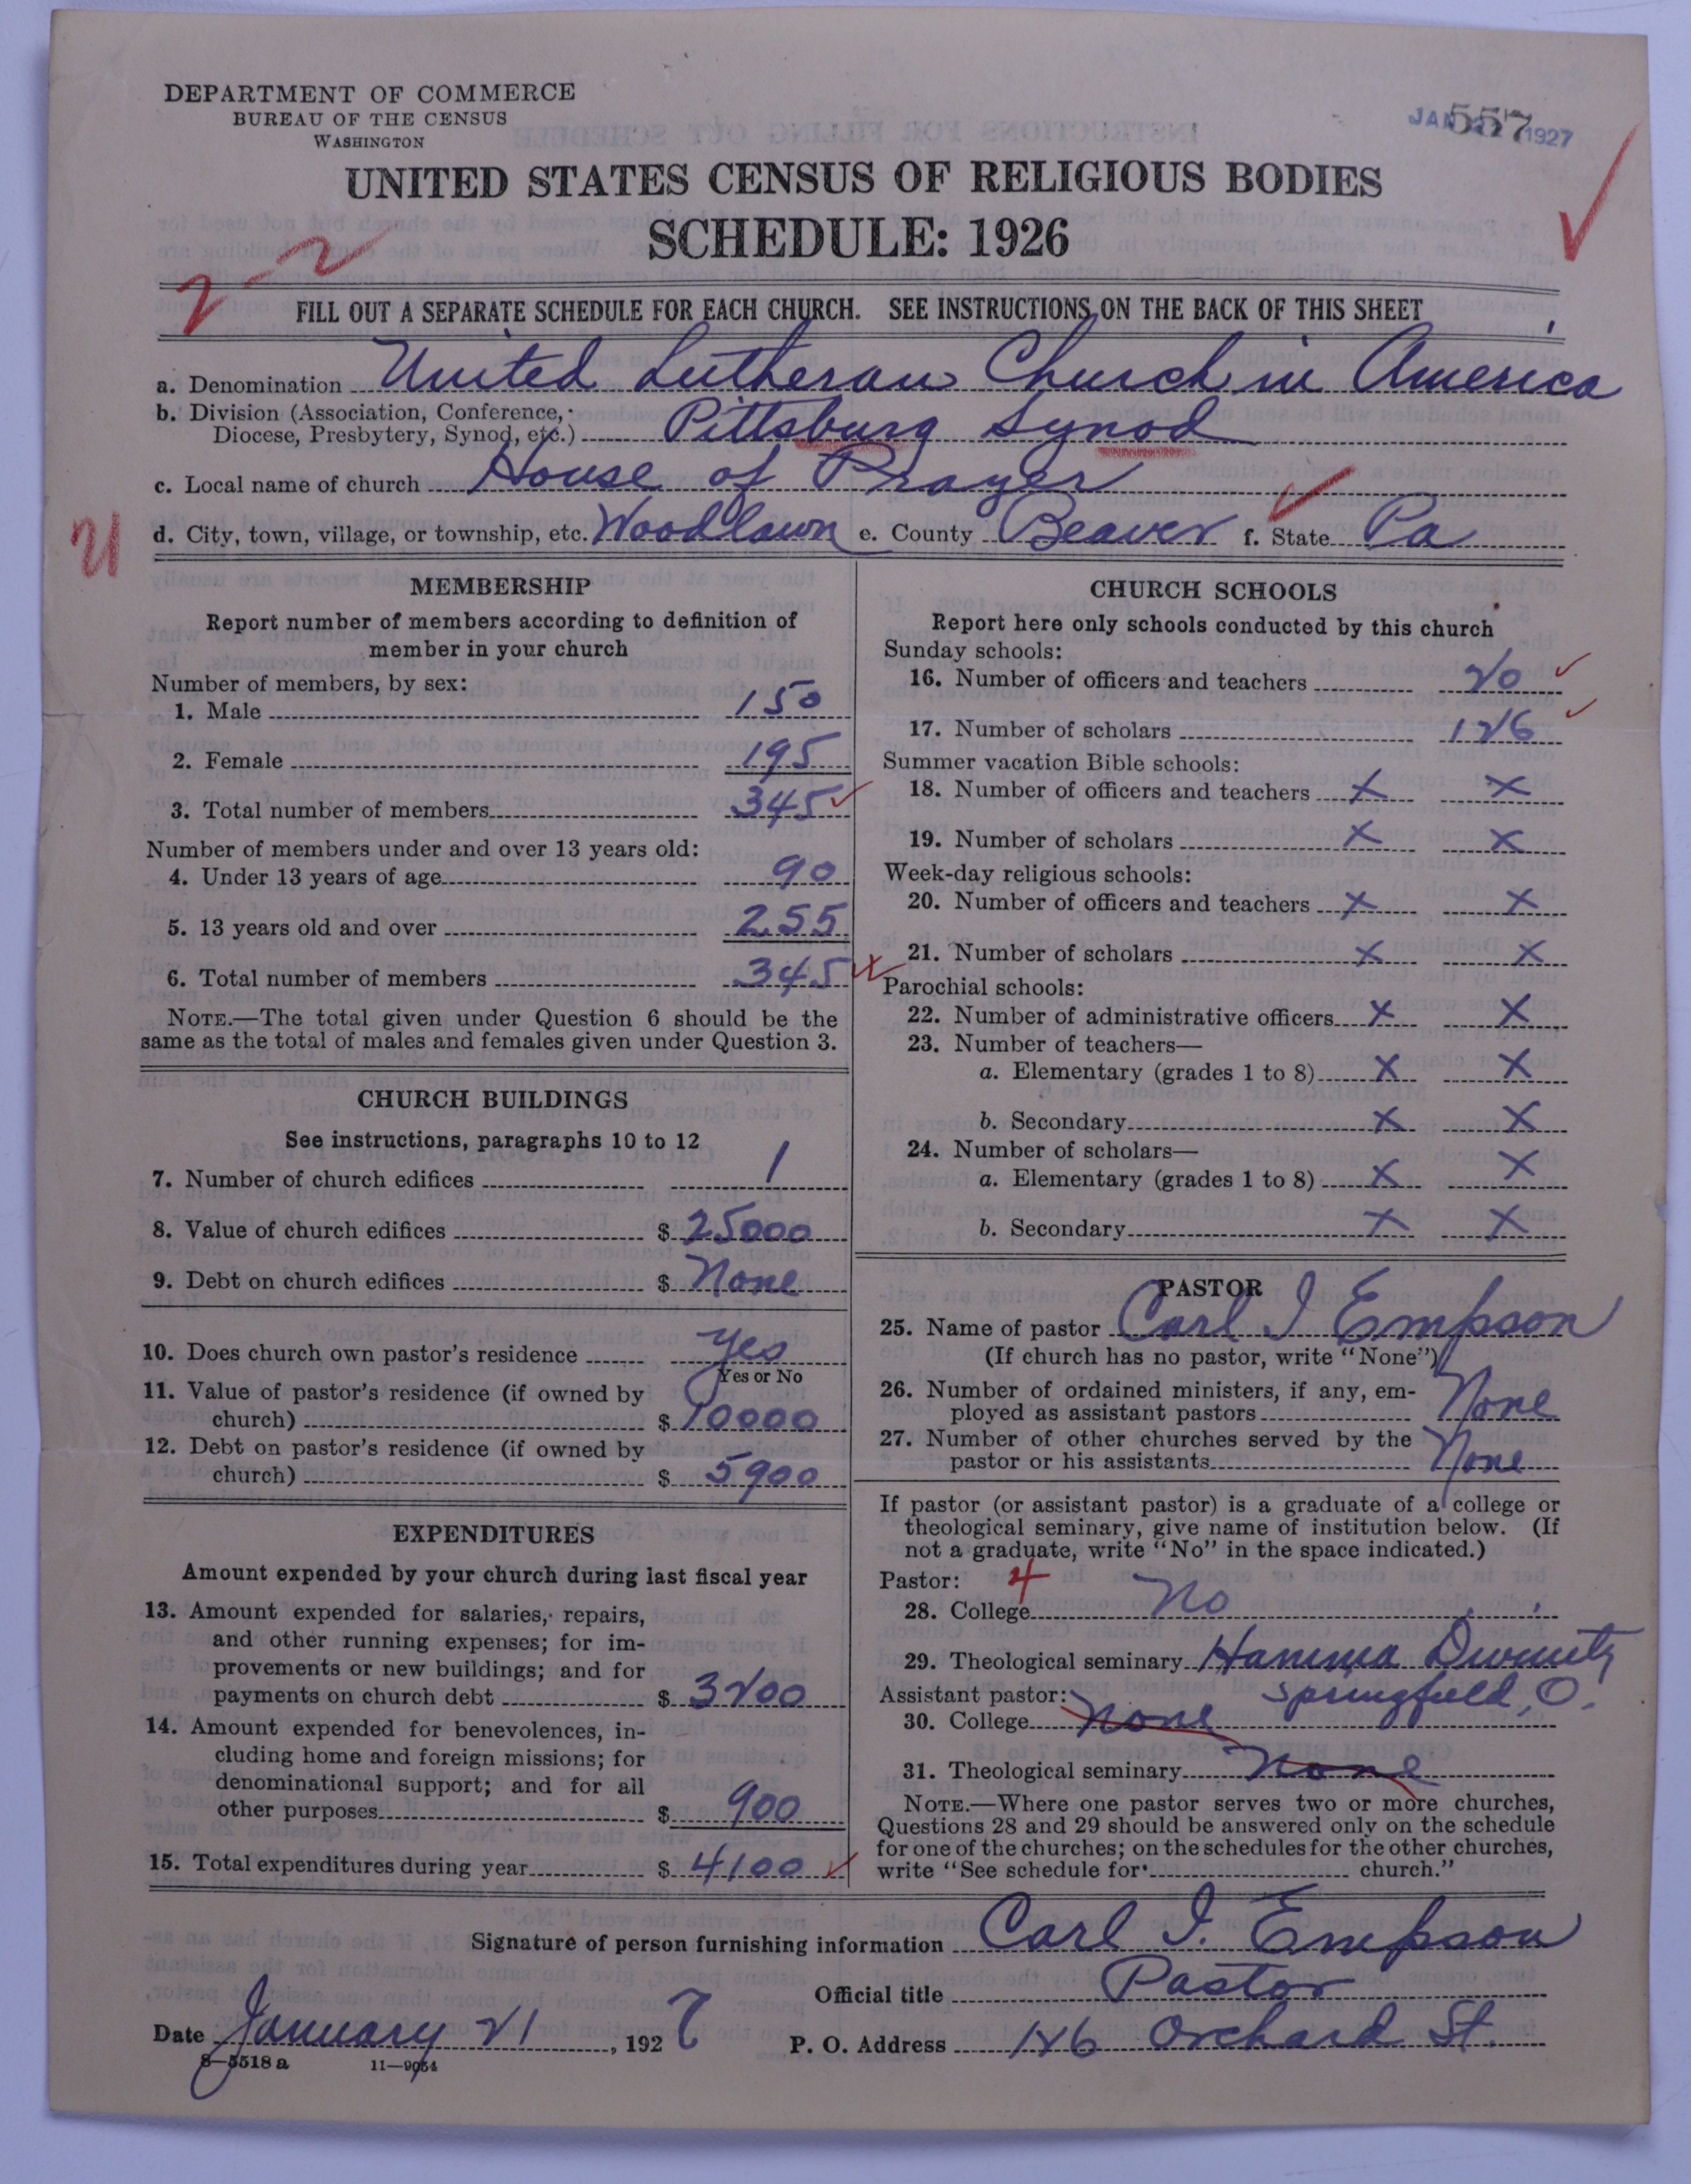 DEPARTMENT OF COMMERCE
BUREAU OF THE CENSUS
WASHINGTON
JAN 1927
557
UNITED STATES CENSUS OF RELIGIOUS BODIES
SCHEDULE: 1926
2-2
FILL OUT A SEPARATE SCHEDULE FOR EACH CHURCH. SEE INSTRUCTIONS ON THE BACK OF THIS SHEET
a. Denomination United Lutheran Church in America
b. Division (Association, Conference,
Diocese, Presbytery, Synod, etc.) Pittsburg Synod
c. Local name of church House of Prayer
U
d. City, town, village, or township, etc. Woodlawn e. County Beaver f. State Pa
MEMBERSHIP
Report number of members according to definition of
member in your church
Number of members, by sex:
1. Male 150
2. Female 195
3. Total number of members 345
Number of members under and over 13 years old:
4. Under 13 years of age 90
5. 13 years old and over 255
6. Total number of members 345
NOTE.—The total given under Question 6 should be the
same as the total of males and females given under Question 3.
CHURCH BUILDINGS
See instructions, paragraphs 10 to 12
7. Number of church edifices 1
8. Value of church edifices $ 25000
9. Debt on church edifices $ None
10. Does church own pastor's residence Yes
Yes or No
11. Value of pastor's residence (if owned by
church) $ 10000
12. Debt on pastor's residence (if owned by
church) $ 5900
EXPENDITURES
Amount expended by your church during last fiscal year
13. Amount expended for salaries, repairs,
and other running expenses; for im-
provements or new buildings; and for
payments on church debt $ 3200
14. Amount expended for benevolences, in-
cluding home and foreign missions; for
denominational support; and for all
other purposes $ 900
15. Total expenditures during year $ 4100
CHURCH SCHOOLS
Report here only schools conducted by this church
Sunday schools:
16. Number of officers and teachers 20
17. Number of scholars 126
Summer vacation Bible schools:
18. Number of officers and teachers X X
19. Number of scholars X X
Week-day religious schools:
20. Number of officers and teachers X X
21. Number of scholars X X
Parochial schools:
22. Number of administrative officers X X
23. Number of teachers—
a. Elementary (grades 1 to 8) X X
b. Secondary X X
24. Number of scholars—
a. Elementary (grades 1 to 8) X X
b. Secondary X X
PASTOR
25. Name of pastor Carl I Empson
(If church has no pastor, write "None")
26. Number of ordained ministers, if any, em-
ployed as assistant pastors None
27. Number of other churches served by the
pastor or his assistants None
If pastor (or assistant pastor) is a graduate of a college or
theological seminary, give name of institution below. (If
not a graduate, write "No" in the space indicated.)
Pastor: 4
28. College No
29. Theological seminary Hamma Divinity
Assistant pastor: Springfield, O.
30. College None
31. Theological seminary None
NOTE.—Where one pastor serves two or more churches,
Questions 28 and 29 should be answered only on the schedule
for one of the churches; on the schedules for the other churches,
write "See schedule for church."
Signature of person furnishing information Carl I. Empson
Official title Pastor
Date January 21, 1927 P. O. Address 126 Orchard St.
8—5518 a 11—9054